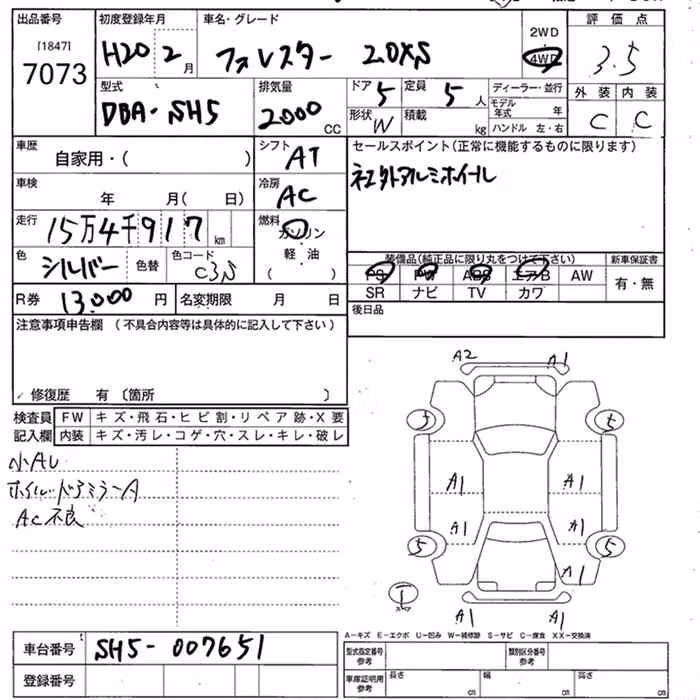 出品番号 初度登録年月 車名・グレード 2WD 評価点
[1847] 7073 H20 2月 フォレスター 20XS 4WD 3.5
型式 排気量 ドア 5 定員 5人 ディーラー・並行 外装 内装
DBA-SH5 2000CC 形状 W 積載 kg モデル年式 年 C C
ハンドル 左・右
車歴 自家用・( ) シフト AT セールスポイント(正常に機能するものに限ります)
車検 年 月( 日) 冷房 AC 社外アルミホイール
走行 15万4千917km 燃料 ガソリン
軽油
( )
色 シルバー 色替 色コード C3S 装備品(純正品に限り丸をつけて下さい) 新車保証書
PS PW ABS エアB AW 有・無
SR ナビ TV カワ
R券 13.000円 名変期限 月 日 後日品
注意事項申告欄 (不具合内容等は具体的に記入して下さい)
修復歴 有 〔箇所 〕
検査員 FW キズ・飛石・ヒビ割・リペア跡・X要
記入欄 内装 キズ・汚レ・コゲ・穴・スレ・キレ・破レ
小AU
ホイル・ドアミラーA
AC不良
A2 A1
5 5
A1 A1
A1 A1
5 5
A1
T
スペア
A1 A1
A-キズ E-エクボ U-凹み W-補修跡 S-サビ C-腐食 XX-交換済
車台番号 SH5-007651 型式指定番号 参考 類別区分番号 参考
登録番号 車庫証明用 参考 長さ cm 幅 cm 高さ cm